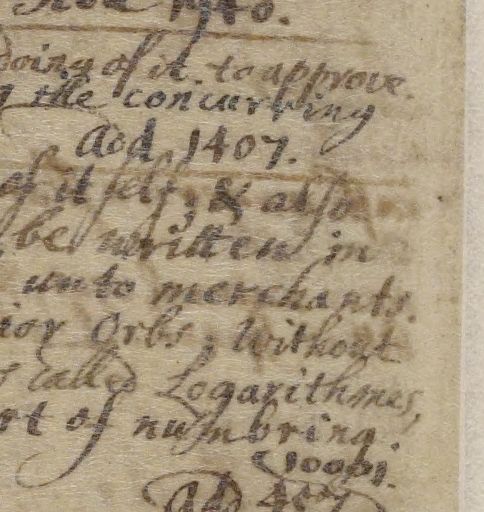 1940.
doing of it. to approve.
the concurring
Add 1407.
of it self, & also
be written in
unto merchants.
ior Orbs, without
called Logarithmes,
rt of numbring.
Add